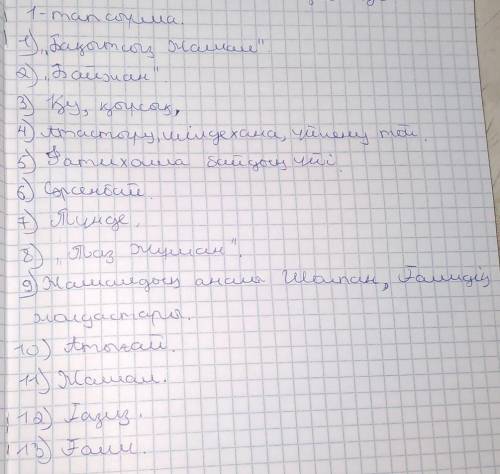 1-тапсырма.
1) „Бақытсыз Жамал"
2) „Байжан"
3) Қу, қырсық,
4) Атастыру, шілдехана, үйлену той.
5) Фатихолла байдың үйі.
6) Сәрсенбай.
7) Түнде.
8) „Таз Жуман".
9) Жамалдың анасы Шолпан, Ғалидің
жолдастары.
10) Атығай.
11) Жамал.
12) Ғазиз.
13) Ғали.